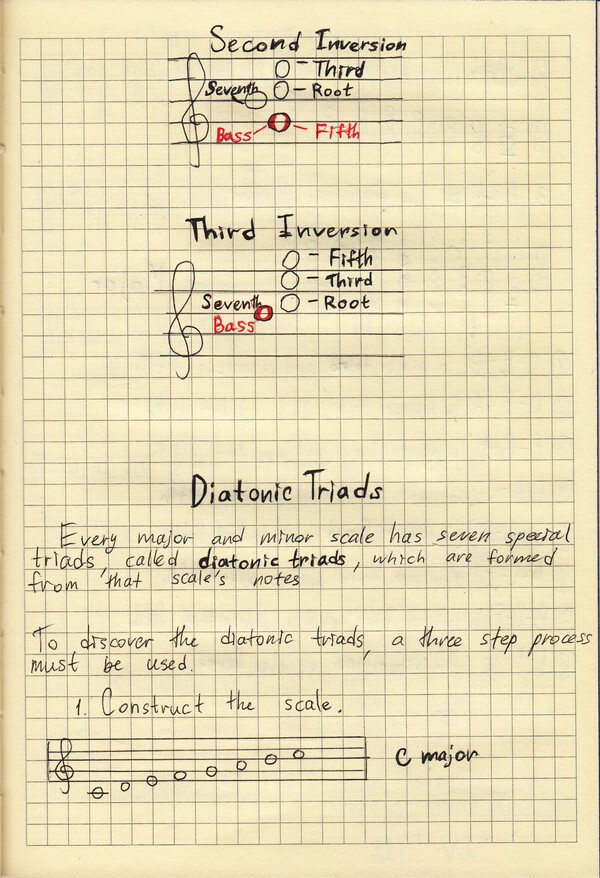 Second Inversion
Third
Seventh Root
Bass Fifth
Third Inversion
Fifth
Third
Seventh Root
Bass
Diatonic Triads
Every major and minor scale has seven special
triads, called diatonic triads, which are formed
from that scale's notes
To discover the diatonic triads, a three step process
must be used.
1. Construct the scale.
C major